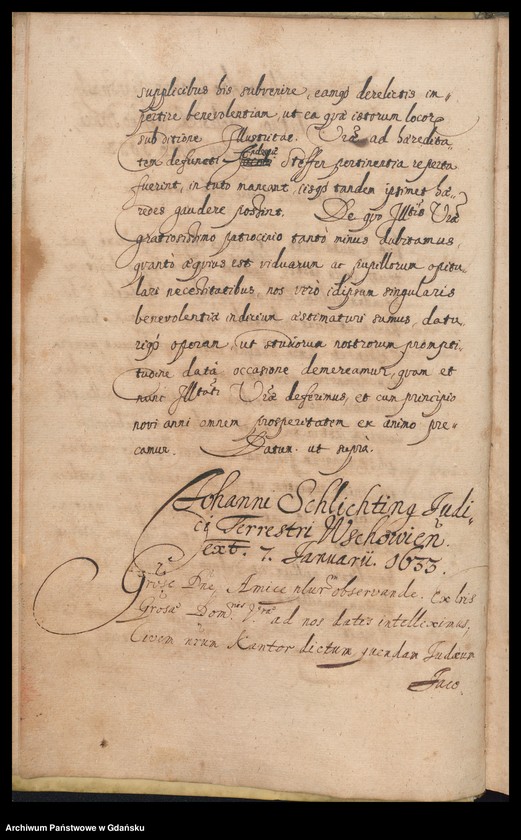 supplicibus his subvenire, eamq́ derelictis im-
pertire benevolentiam, ut ea quæ istorum locorꝝ
subditione Illustritæ. Vræ ad hæredita-
tem defuncti Steffen pertinentia reperta
fuerint, in tuto maneant, iisq́ tandem ipsimet hæ-
redes gaudere possint. De quo Illtis Vræ
gratiosissimo patrocinio tantò minus dubitamus,
quantò æquius est viduarum ac pupillorum opitu-
lari necessitatibus, nos verò idipsum singularis
benevolentiæ indicium æstimaturi sumus, datu-
riq́ operam, ut studiorum nostrorum prompti-
tudine datâ occasione demereamur, quam et
nunc Illtati Vræ deferimus, et cum principio
novi anni omnem prosperitatem ex animo pre-
camur. Datum ut suprà.
Johanni Schlichting Judi-
cij Terrestri Wschowien.
ext. 7. Januarii. 1633.
Grose Dne, Amice observande. Ex lris
Grosæ Domnis Vræ ad nos datis intelleximus,
Civem nrum Kantor dictum quendam Judæum
Jaco
Archiwum Państwowe w Gdańsku